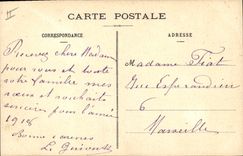 II
CARTE POSTALE
CORRESPONDANCE
ADRESSE
Recevez chère Madame
pour vous et toute
votre famille mes
vœux et souhaits
sincères pour l'année
1918
Bonne
Madame Fiat
Rue
6
Marseille